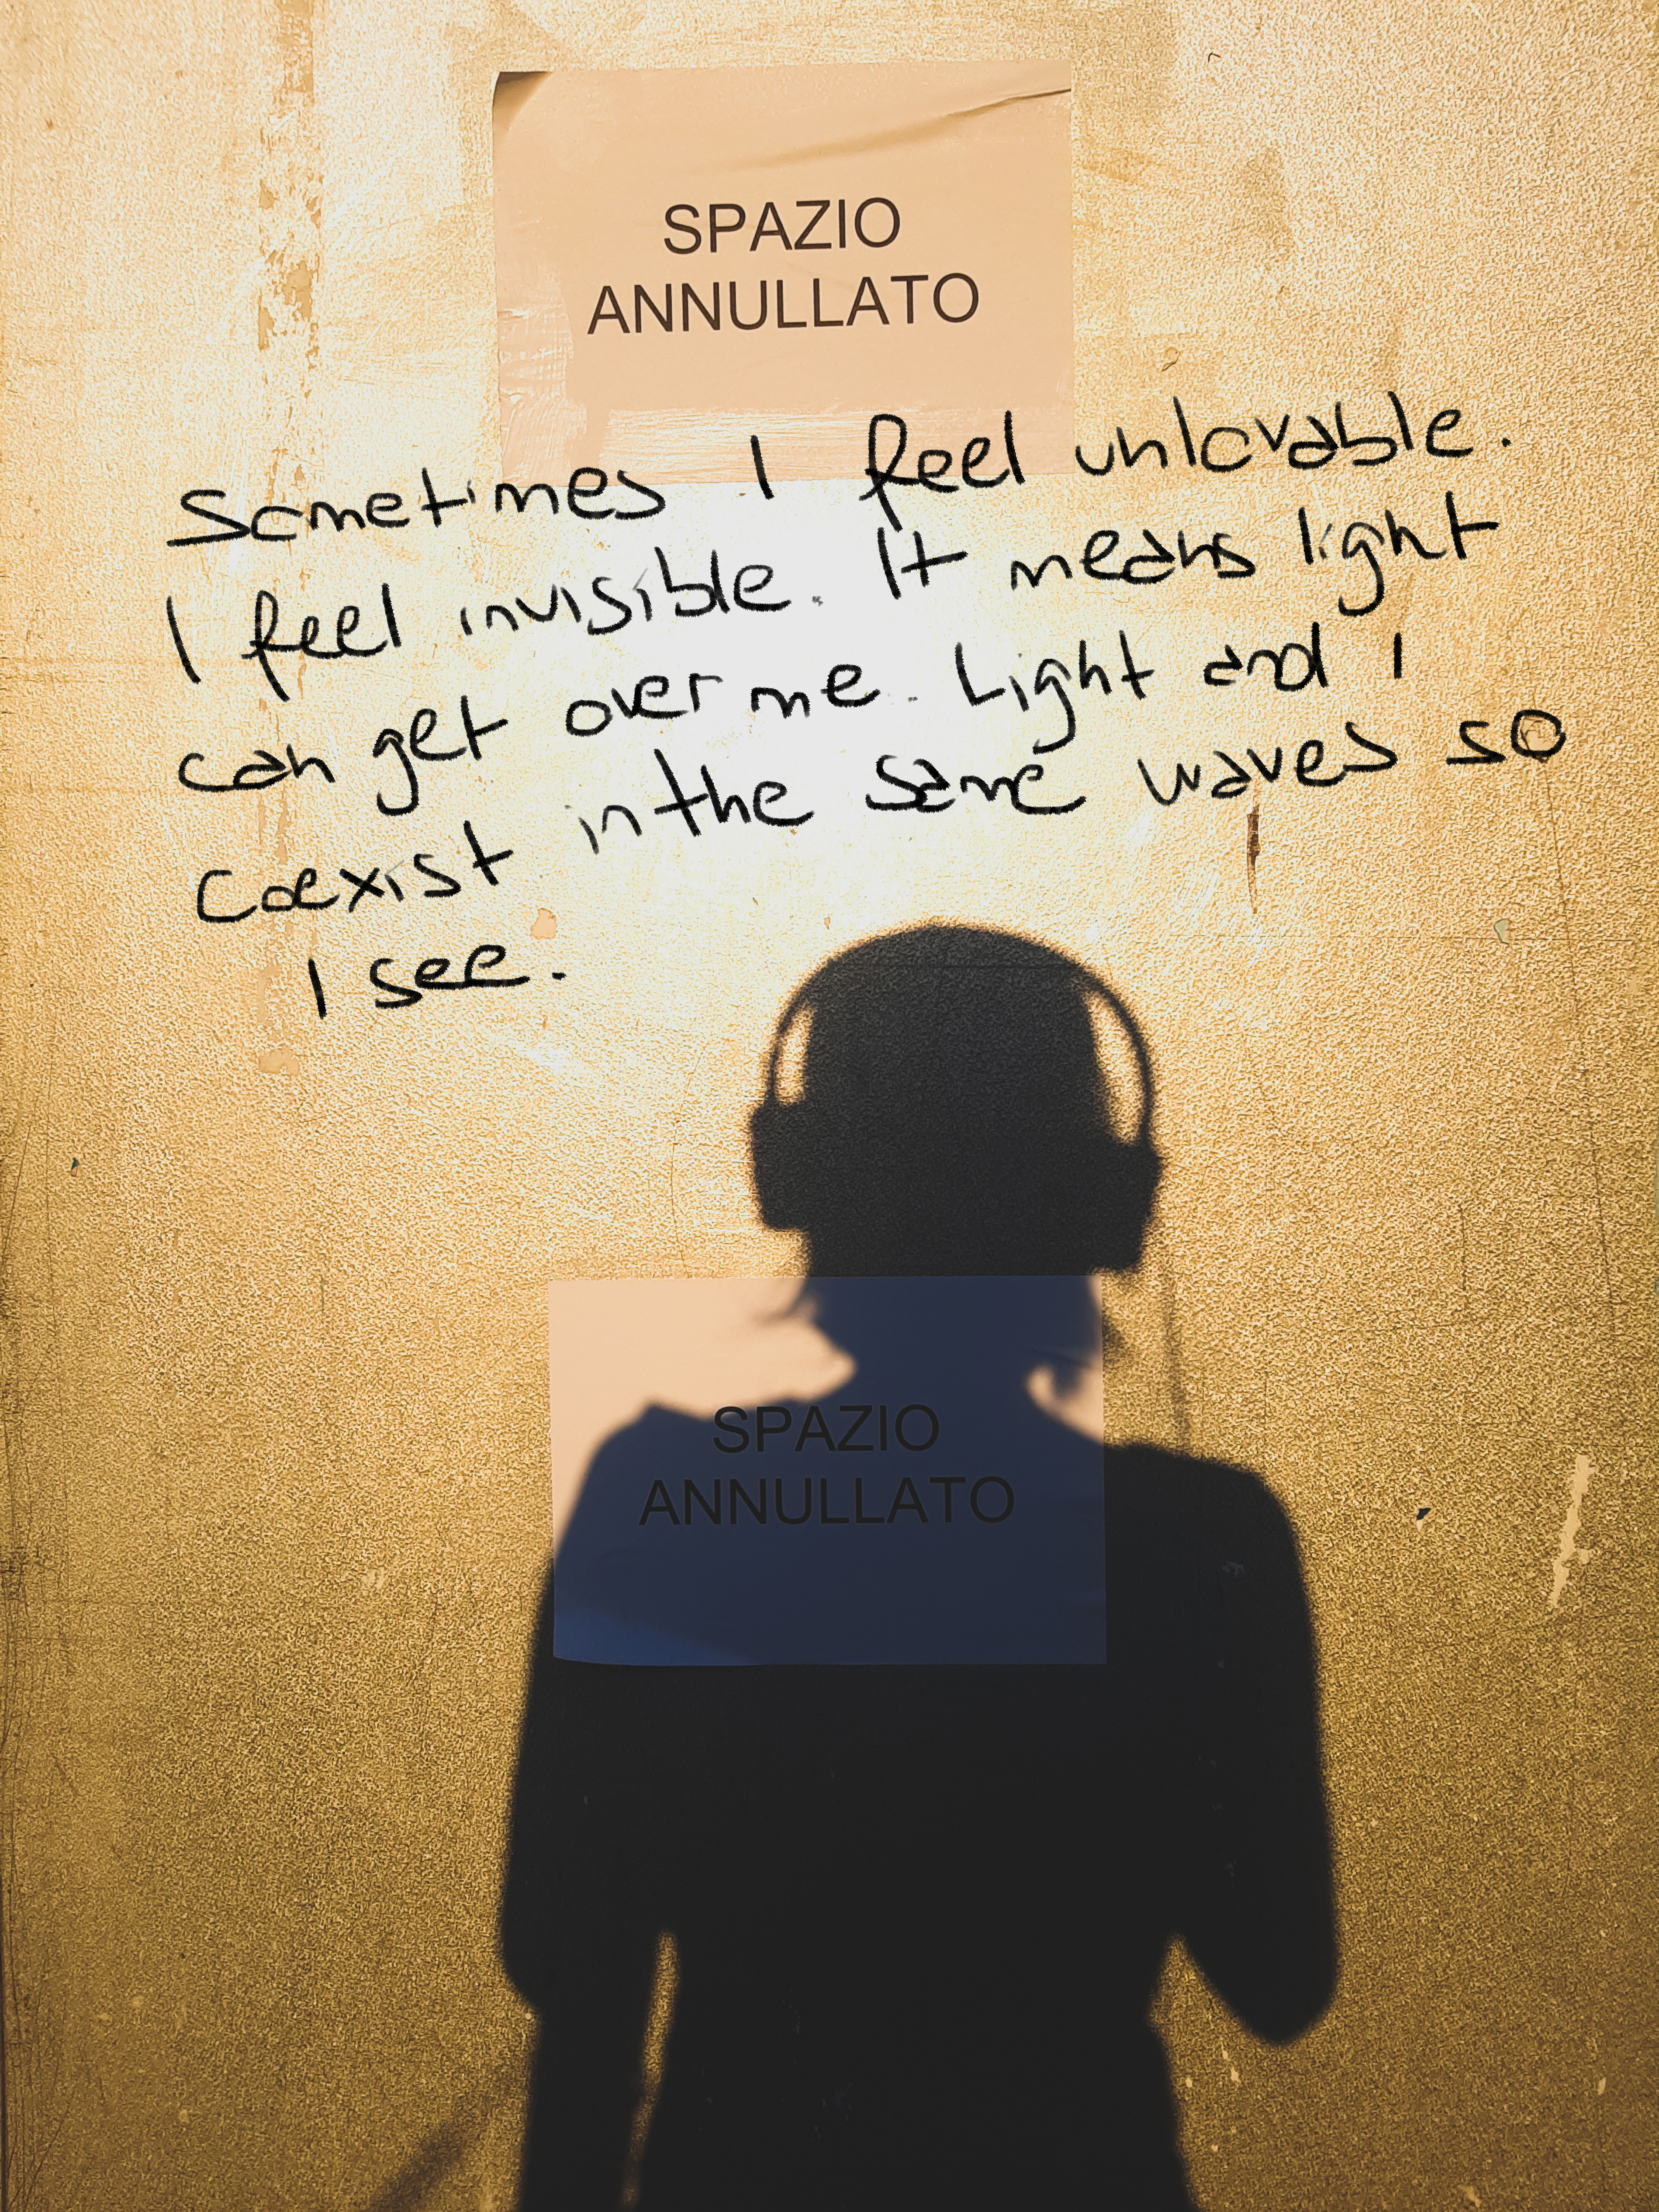 SPAZIO
ANNULLATO
Sometimes I feel unlovable.
I feel invisible. It means light
can get over me. Light and I
coexist in the same waves so
I see.
SPAZIO
ANNULLATO